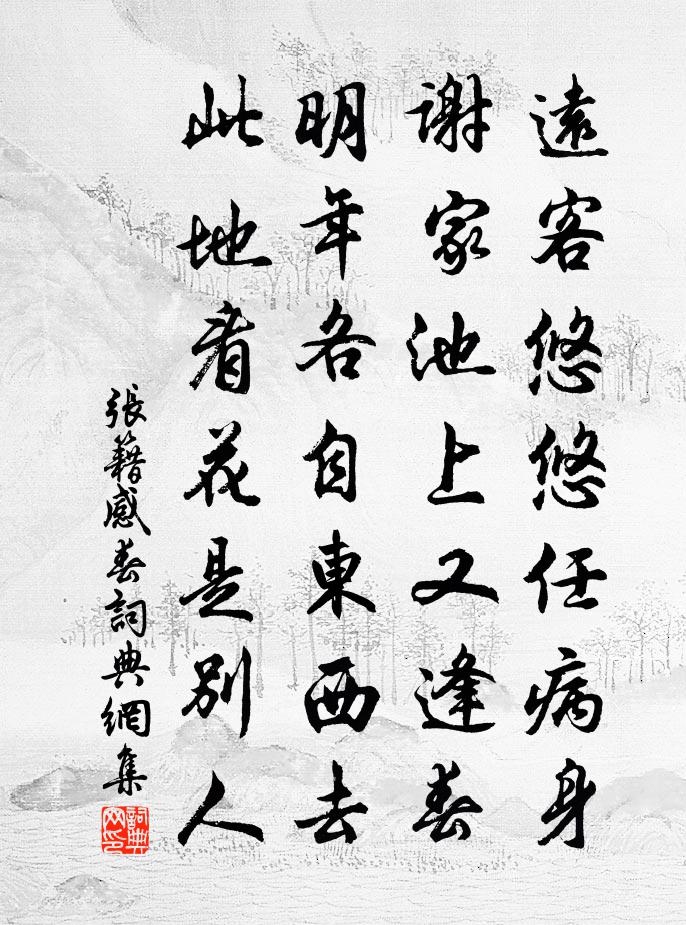 遠客悠悠任病身
謝家池上又逢春
明年各自東西去
此地看花是別人
張籍感春詞典網集
詞典網印